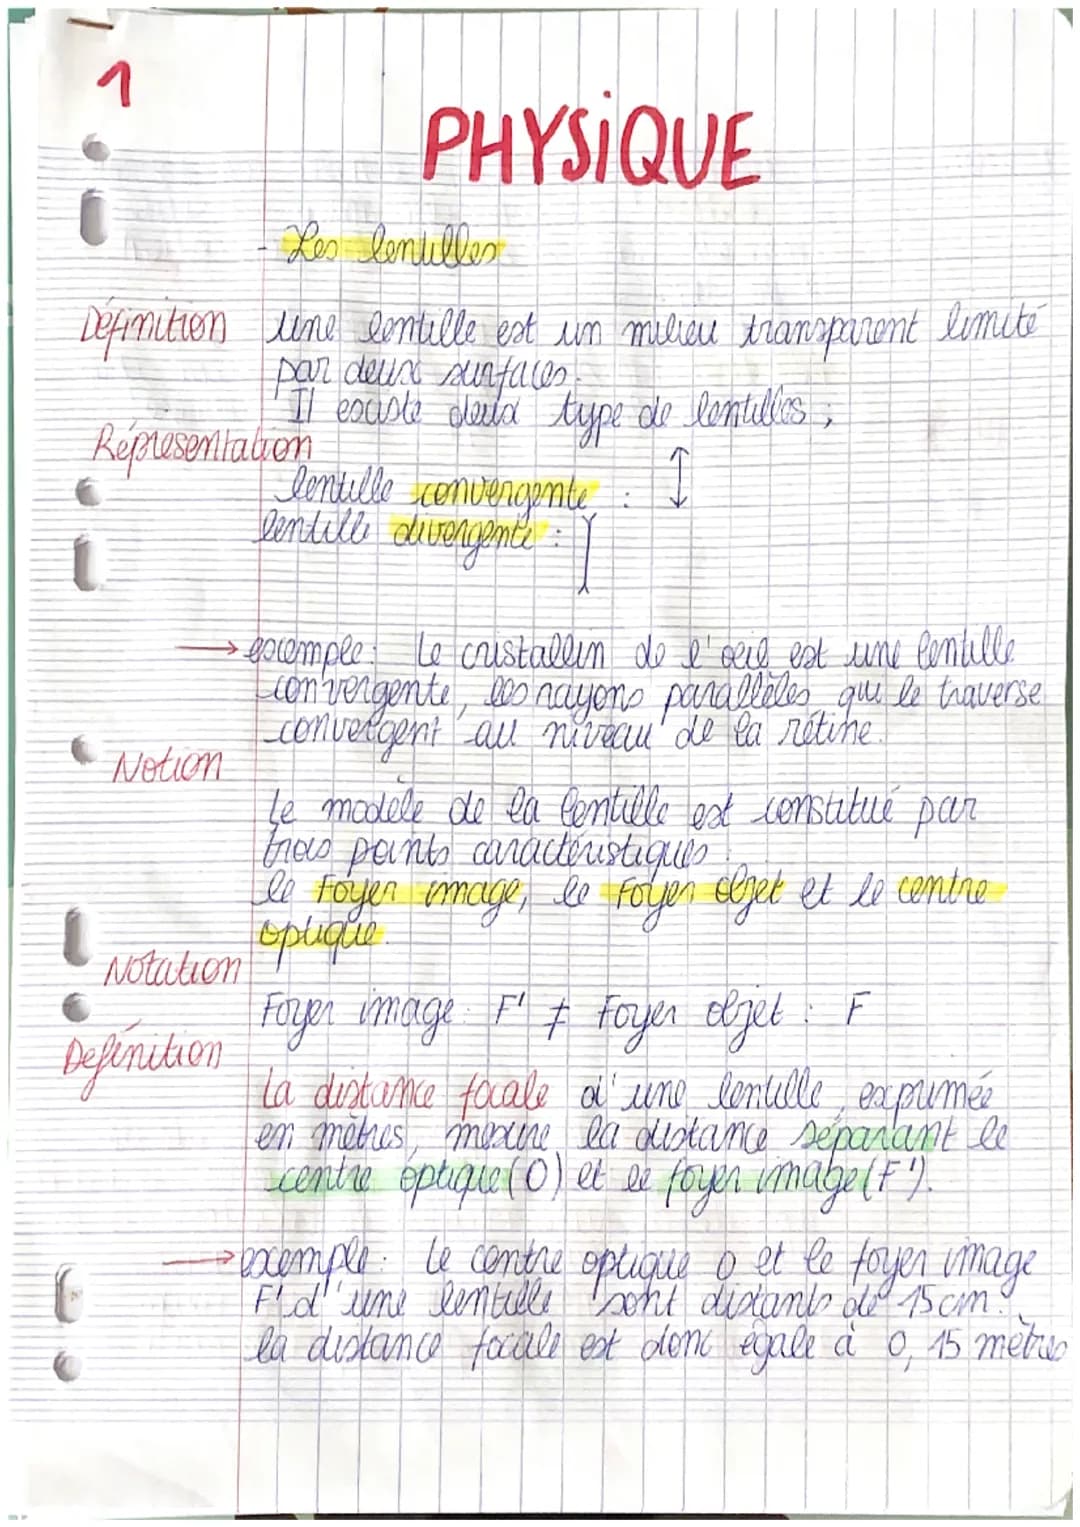 1
PHYSiQUE
- Les lentilles
Définition Une lentille est un milieu transparent limité
par deux surfaces.
Il existe deux type de lentilles ;
Réprésentation
lentille convergente :
lentille divergente :
→ exemple : Le cristallin de l'oeil est une lentille
convergente, les rayons parallèles qui le traverse
convergent au niveau de la rétine.
Notion
Le modèle de la lentille est constitué par
trois points caractéristiques :
le Foyer image, le Foyer objet et le centre
optique.
Notation
Foyer image : F' ≠ Foyer objet : F
Definition
La distance focale d'une lentille, exprimée
en mètres, mesure la distance séparant le
centre optique (O) et le foyer image (F').
→ exemple : Le centre optique O et le foyer image
F' d'une lentille sont distants de 15 cm.
la distance focale est donc égale à 0,15 mètres